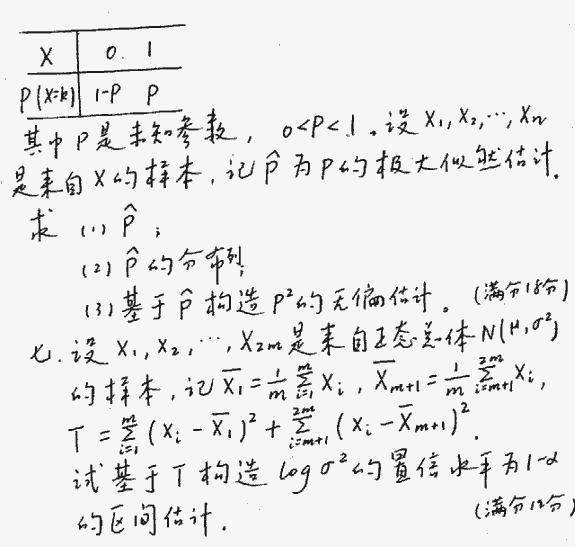 X | 0. 1
P(X=k) | 1-P P
其中P是未知参数, 0<P<1。设 X₁, X₂, …, Xₙ
是来自X的样本, 记 P̂ 为P的极大似然估计.
求 (1) P̂;
(2) P̂的分布列;
(3) 基于 P̂ 构造 P²的无偏估计。(满分18分)
七. 设 X₁, X₂, …, X₂ₘ是来自正态总体N(μ,σ²)
的样本, 记 X̄₁ = 1/m ∑_{i=1}^{m} Xᵢ, X̄ₘ₊₁ = 1/m ∑_{i=m+1}^{2m} Xᵢ,
T = ∑_{i=1}^{m} (Xᵢ - X̄₁)² + ∑_{i=m+1}^{2m} (Xᵢ - X̄ₘ₊₁)².
试基于T构造 log σ²的置信水平为1-α
的区间估计. (满分12分)